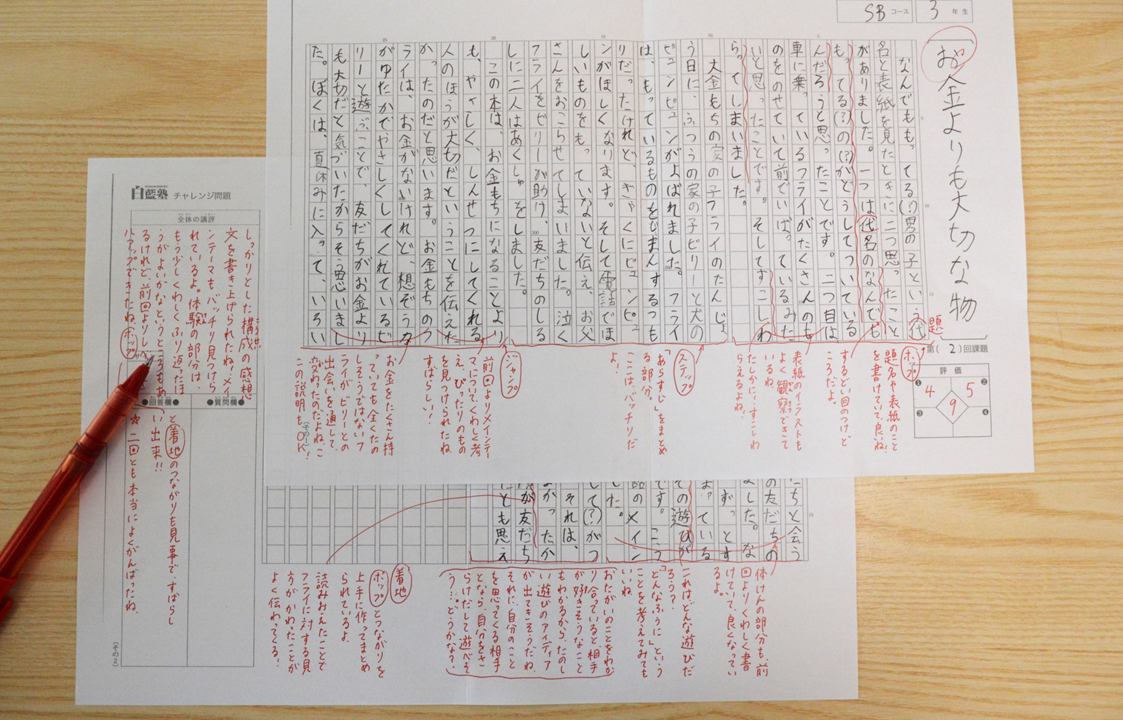 SBコース 3年生
お金よりも大切な物
第(2)回課題
評価
① 5
② 4
③
④
9
なんでももってる(?)男の子という代
名と表紙を見たときに二つ思ったこと
がありました。一つは代名のなんでも
もってる(?)の(?)がどうしてついている
んだろうと思ったことです。二つ目は
車に乗っているフライがたくさんのも
のをのせていて前でいばっているみた
いと思ったことです。そしてすこしわ
らってしまいました。
大金もちの家の子フライのたんじょ
う日に、ふつうの家の子ビリーと犬の
ピュンピュンがよばれました。フライ
は、もっているものをじまんするつも
りだったけれど、ぎゃくにピュンピュ
ンがほしくなります。そして電話でほ
しいものをもっていないと伝え、お父
さんをおこらせてしまいました。泣く
フライをビリーが助け、友だちのしる
しに二人はあくしゅをしました。
この本は、お金もちになることより
も、やさしく、しんせつにしてくれる
人のほうが大切だということを伝えた
かったのだと思います。お金もちのフ
ライは、お金がないけれど、想ぞう力
がゆたかでやさしくしてくれているビ
リーと遊ぶことで、友だちがお金より
も大切だと気づいたからそう思いまし
た。ぼくは、夏休みに入って、いろい
題
ホップ
題名や表紙のこと
を書けていて良いね!
するどい目のつけど
ころだよ。
表紙のイラストも
よく観察できて
いるね。
たしかに、すこしわ
らえるよね!
ステップ
「あらすじ」をまとめ
る部分。
ここは、バッチリだ
よ!
ジャンプ
前回よりメインテー
マについてくわしく考
え、ぴったりのもの
を見つけられたね
すばらしい!
お金をたくさん持
っていても全くたの
しそうではないフ
ライがビリーとの
出会いを通して、
変わったのだよね。こ
この説明もOK!
たちと会う
の友だちの
ました。な
ずっとす
ます?ている
ての遊びが
です。こう
のメイン
した。
して(?)がつ
それは、
かったか
が友だち
にとも思え
体けんの部分も、前
回よりくわしく書
けていて、良くなってい
るよ。
これはどんな遊びだ
ろう?
「どんなふうに」という
ことを考えてみても
いいね
おたがいのことをわか
り合っていると相手
が好きそうなこと
もわかるから、たのし
い遊びのアイディア
が出てきそうだね
それに、自分のこと
を思ってくる相手
となら、自分をさ
らけだして遊べそ
う!どうかな?
着地
ホップとつながりを
上手に作ってまとめ
られているよ。
読みおえたことで
フライに対する見
方がかわたことが
よく伝わってくる!
白藍塾 チャレンジ問題
全体の講評
しっかりとした構成の感想
文を書き上げられたね!メイ
ンテーマもバッチリ見つけら
れているよ。体験の部分は、
もう少しくわしくふり返ったほ
うがよいかな、というところもあ
るけれど、前回よりレベ
ルアップできたね。ホップ
●質問欄●
●回答欄●
と着地のつながりも見事ですばらし
い出来!!
☆二回とも本当によくがんばったね。